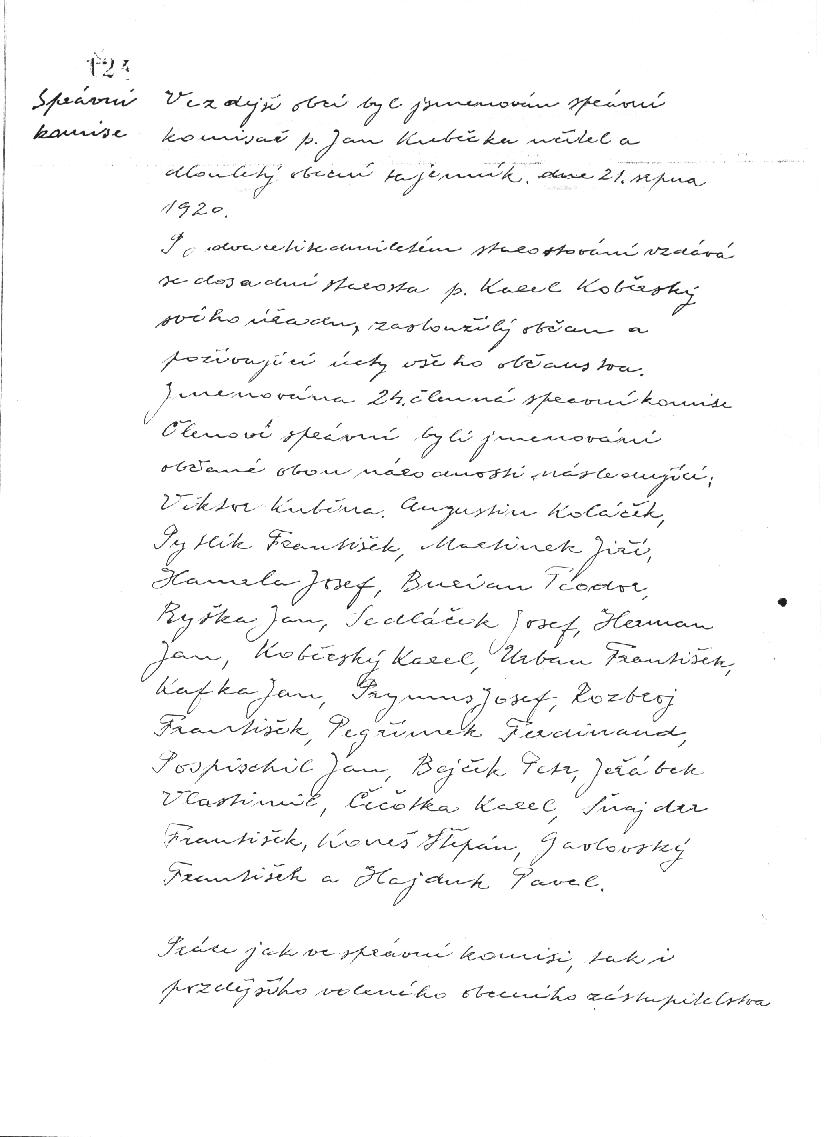 124
Správní
komise
Ve zdejší obci byl jmenován správní
komisař p. Jan Kubíčka učitel a
dlouhetý obecní tajemník. dne 21. srpna
1920.
Po dvacetisedmiletém starostování vzdává
se dosadní starosta p. Karel Koběrský
svého úřadu, zasloužilý občan a
požívající úcty všeho občanstva.
Jmenována 24. členná správní komise
Členové správní byli jmenováni
občané obou národností následující:
Viktor Kuběna. Augustin Koláček,
Pytlík František, Martinek Jiří,
Hamela Josef, Burian Teodor,
Ryška Jan, Sedláček Josef, Herman
Jan, Koběrský Karel, Urban František,
Kafka Jan, Prymus Josef, Rozbroj
František, Pegřimek Ferdinand,
Pospischil Jan, Bajček Petr, Jeřábek
Vlastimil, Čečotka Karel, Šnajder
František, Koneš Štěpán, Gavlovský
František a Hajduk Pavel.
Práce jak ve správní komisi, tak i
pozdějšího voleného obecního zástupitelstva